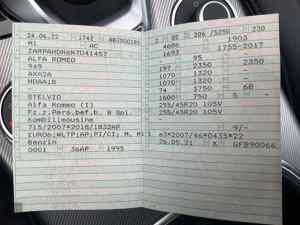 24.06.22 1742 206 / 5250 230
M1 AC 4686 1903
1693 1755-2017
ALFA ROMEO 95
949 197 2350 2350
1070 1320
1070 1320
74 3750 68
STELVIO 1600 750 5
Alfa Romeo (I) 255/45R20 105V
Fz.z.Pers.bef.b. 8 Spl. 255/45R20 105V
Kombilimousine
715/2007*2018/1832AP 9/-
EURO6;WLTP;AP;PI/CI; M, N1 I e3*2007/46*0435*22
Benzin 26.05.21 X
0001 36AP 1995